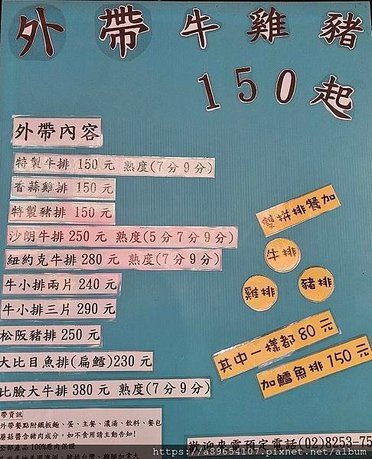 外帶牛雞豬
150起
外帶內容
特製牛排 150元 熟度(7分9分)
香蒜雞排 150元
特製豬排 150元
沙朗牛排 250元 熟度(5分7分9分)
紐約克牛排 280元 熟度(7分9分)
牛小排兩片 240元
牛小排三片 290元
松阪豬排 250元
大比目魚排(扁鱈)230元
比臉大牛排 380元 熟度(7分9分)
雙拼排餐加
牛排
雞排
豬排
其中一樣都80元
加鱈魚排150元
帶資訊
外帶餐點附鐵板麵、蛋、主餐、濃湯、飲料、餐包
蘑菇醬含豬肉成分，如不食用請主動告知!
歡迎來電預定電話(02)8253-75
https://a89654107.pixnet.net/album